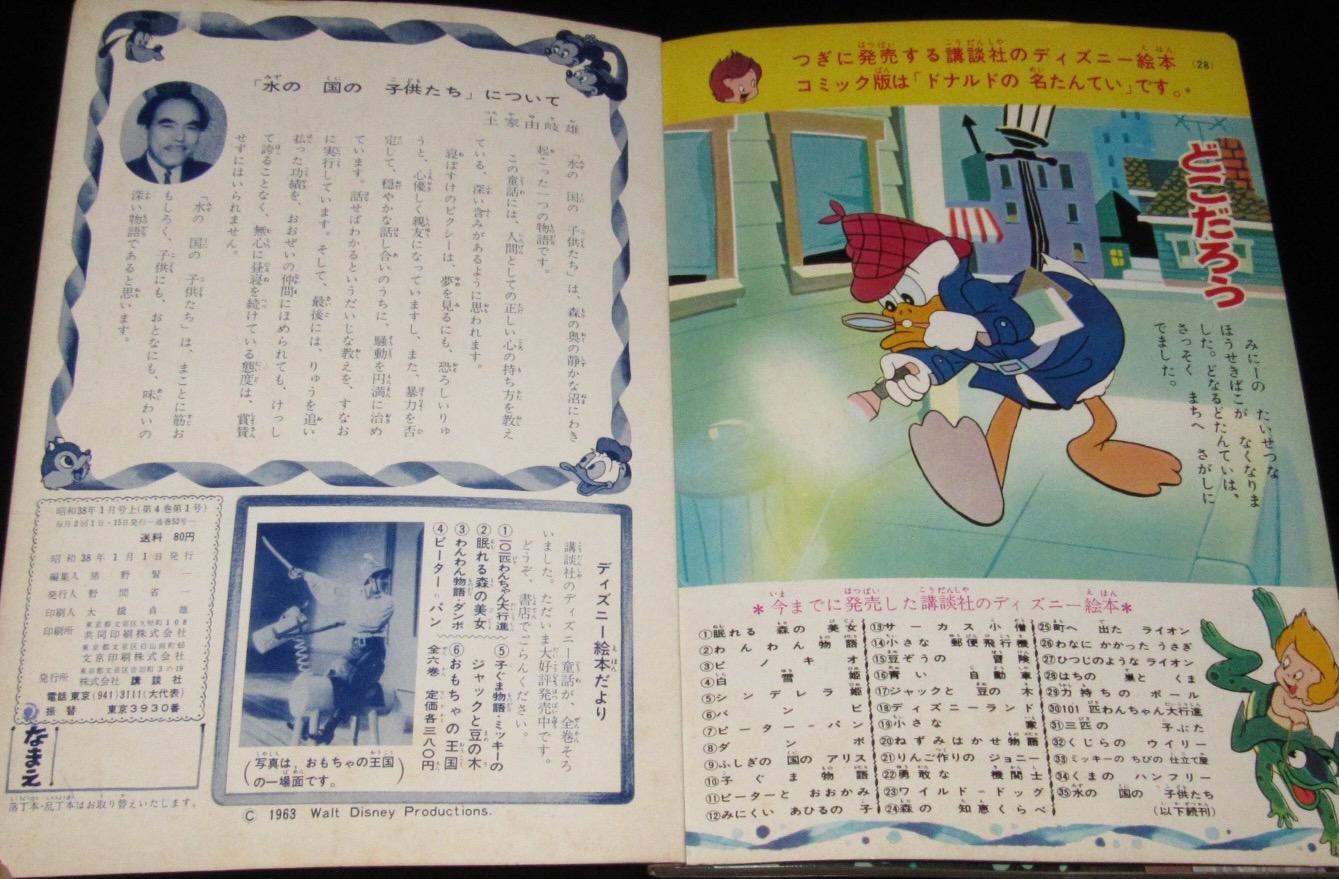 「水の 国の 子供たち」について
王家由岐雄
「水の 国の 子供たち」は、森の奥の静かな沼にわき
起こった一つの物語です。
この童話には、人間としての正しい心の持ち方を教え
ている、深い含みがあるように思われます。
寝ぼすけのピクシーは、夢を見るにも、恐ろしいりゅ
うと、心優しく親友になっていますし、また、暴力を否
定して、穏やかな話し合いのうちに、騒動を円満に治め
ています。話せばわかるというだいじな教えを、すなお
に実行しています。そして、最後には、りゅうを追い
払った功績を、おおぜいの仲間にほめられても、けっし
て誇ることなく、無心に昼寝を続けている態度は、賞賛
せずにはいられません。
「水の 国の 子供たち」は、まことに筋お
もしろく、子供にも、おとなにも、味わいの
深い物語であると思います。
昭和38年1月号上(第4巻第1号)
毎月2回1日・15日発行―通巻52号―
送料 80円
昭和38年1月1日発行
編集人
発行人 野間省一
印刷人 大橋貞雄
印刷所
共同印刷株式会社
文京印刷株式会社
発行所 株式会社 講談社
電話 東京(941)3111(大代表)
振替 東京3930番
なまえ
落丁本・乱丁本はお取り替えいたします。
ディズニー絵本だより
講談社のディズニー童話が、全巻そろ
いました。ただいま大好評発売中です。
どうぞ、書店でごらんください。
①一〇一匹わんちゃん大行進
②眠れる森の美女
③わんわん物語・ダンボ
④ピーター=パン
⑤子ぐま物語・ミッキーの
ジャックと豆の木
⑥おもちゃの王国
全六巻 定価各三八〇円
(写真は、おもちゃの王国
の一場面です。)
© 1963 Walt Disney Productions.
つぎに発売する講談社のディズニー絵本
コミック版は「ドナルドの 名たんてい」です。
(28)
どこだろう
みにーの たいせつな
ほうせきばこが なくなりま
した。どなるどたんていは、
さっそく まちへ さがしに
でました。
*今までに発売した講談社のディズニー絵本*
①眠れる 森の 美女
②わんわん 物語
③ピノキオ
④白雪姫
⑤シンデレラ姫
⑥バンビ
⑦ピーター-パン
⑧ダンボ
⑨ふしぎの 国の アリス
⑩子ぐま 物語
⑪ピーターと おおかみ
⑫みにくい あひるの 子
⑬サーカス小僧
⑭小さな 郵便飛行機
⑮豆ぞうの 冒険
⑯青い 自動車
⑰ジャックと 豆の 木
⑱ディズニーランド
⑲小さな 家
⑳ねずみはかせ物語
㉑りんご作りの ジョニー
㉒勇敢な 機関士
㉓ワイルド-ドッグ
㉔森の 知恵くらべ
㉕町へ 出た ライオン
㉖わなに かかった うさぎ
㉗ひつじのような ライオン
㉘はちの 巣と くま
㉙力持ちの ポール
㉚101 匹わんちゃん大行進
㉛三匹の 子ぶた
㉜くじらの ウイリー
㉝ミッキーの ちびの 仕立て屋
㉞くまの ハンフリー
㉟水の 国の 子供たち
(以下続刊)